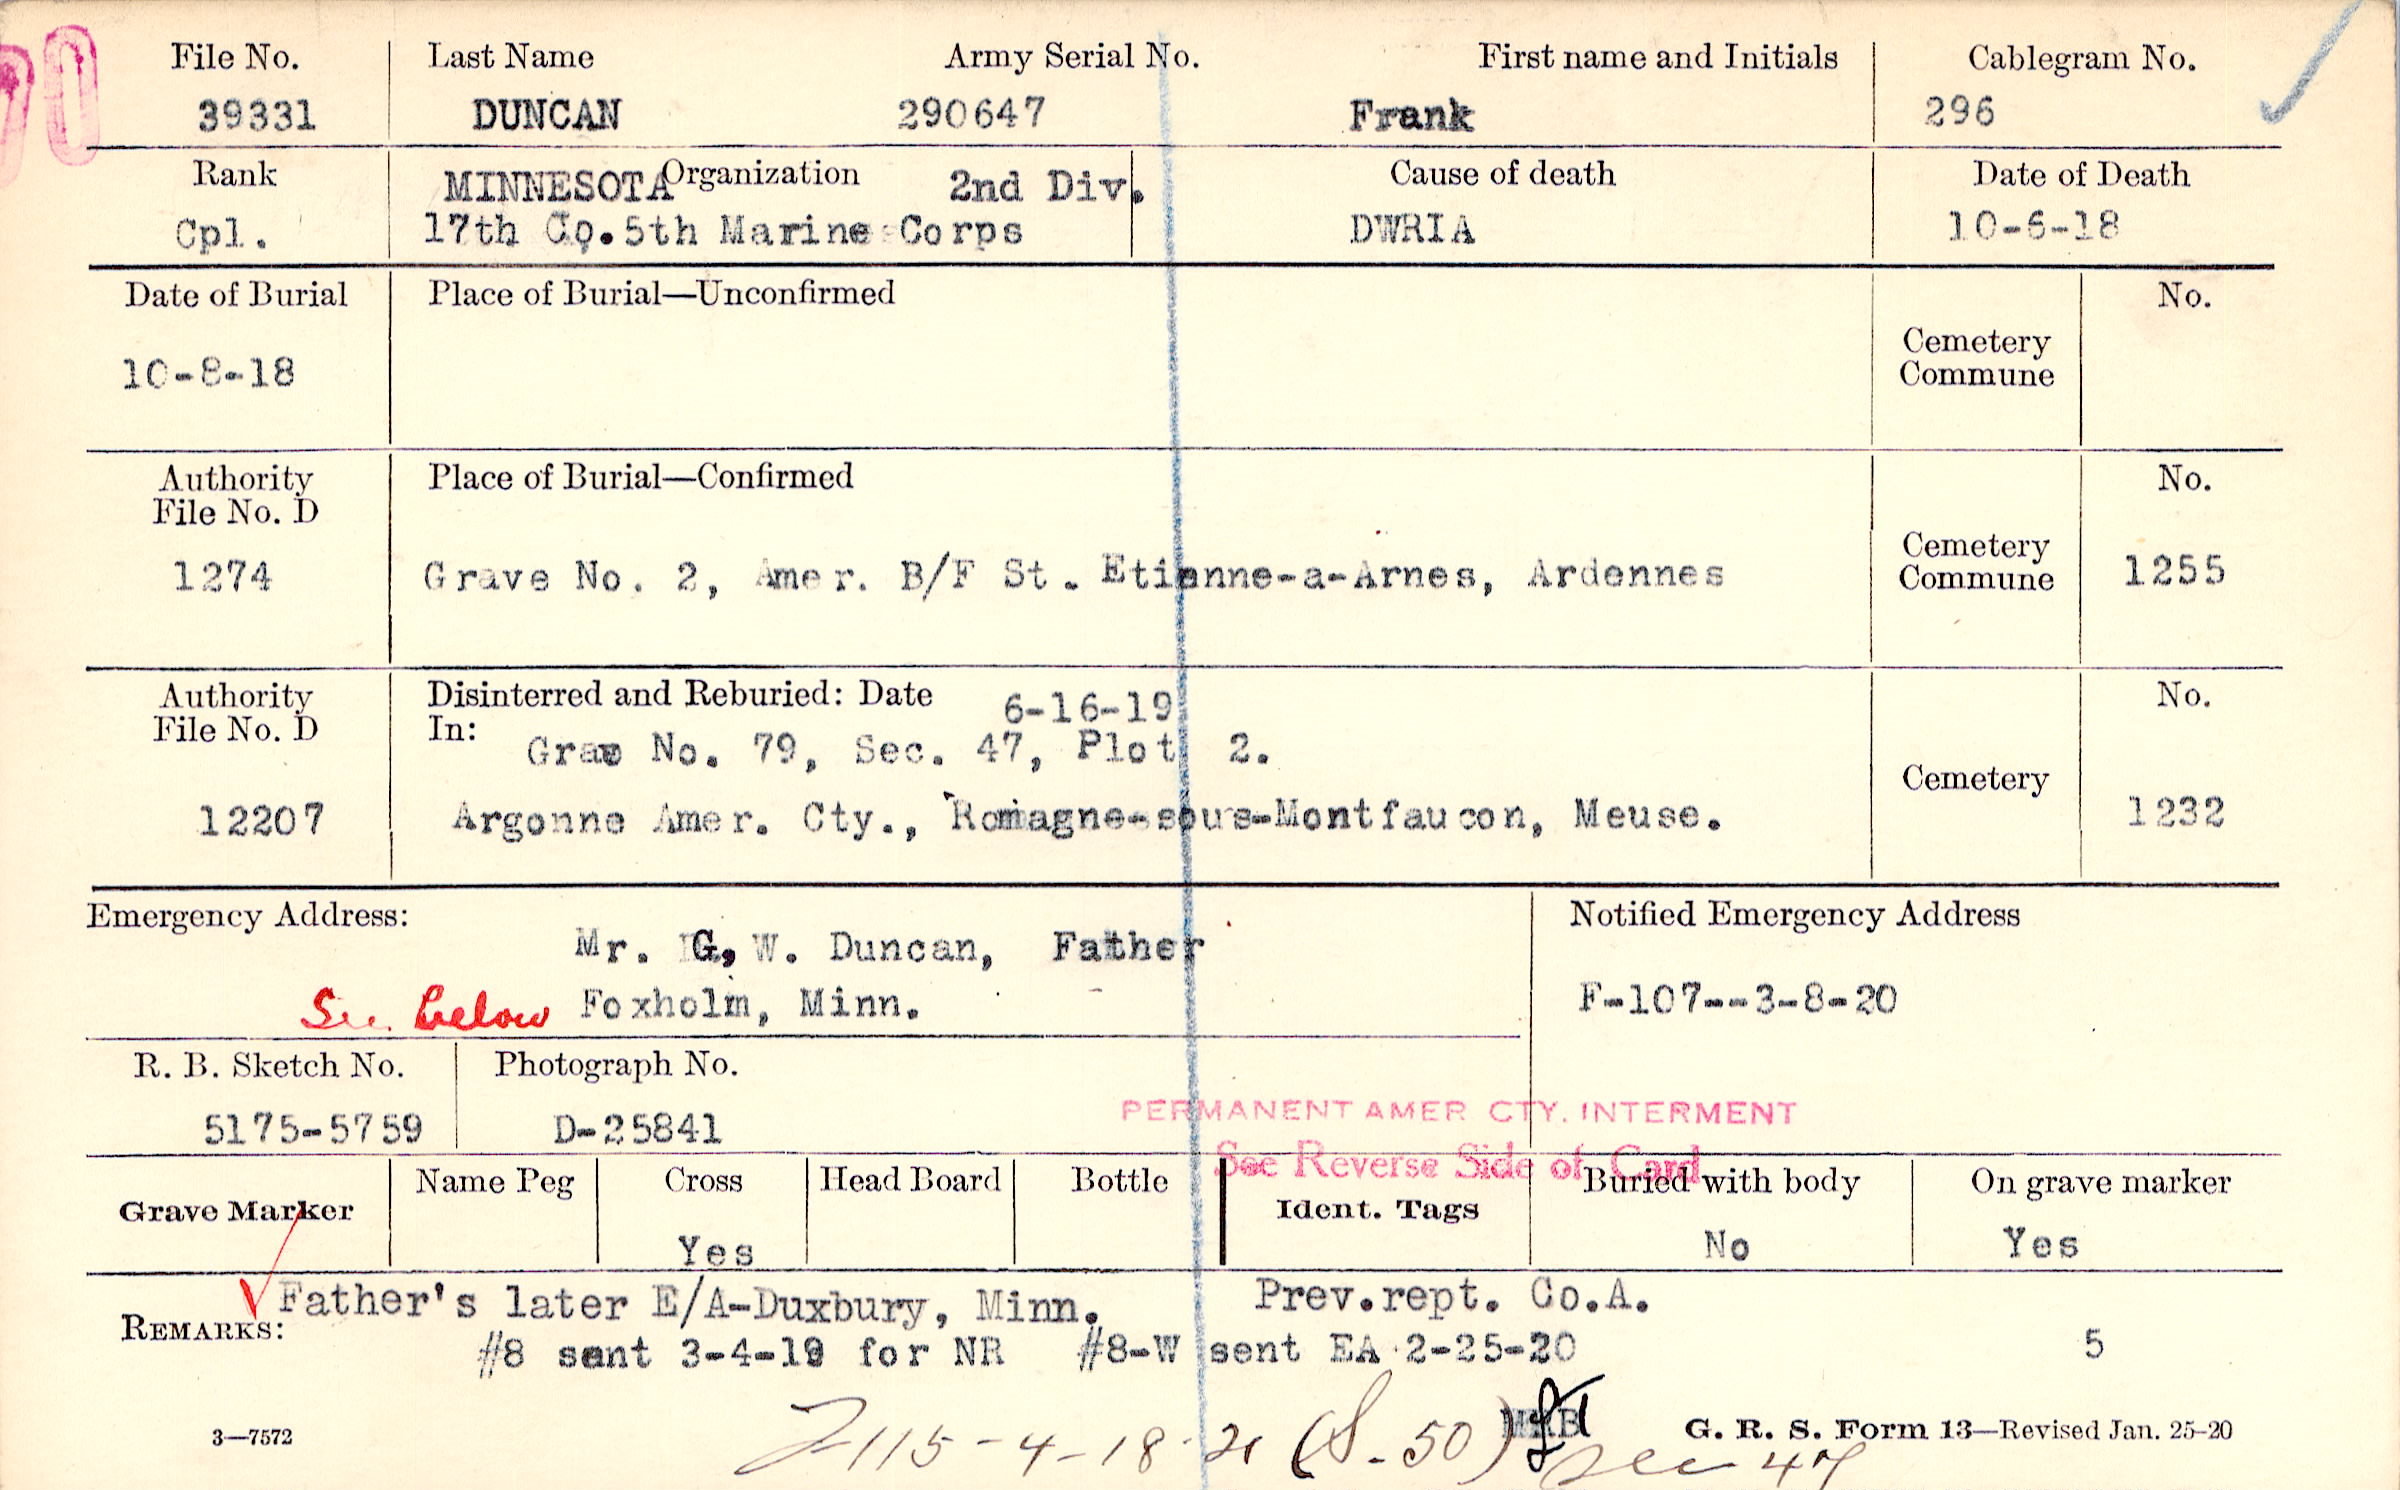 70
File No. Last Name Army Serial No. First name and Initials Cablegram No.
39331 DUNCAN 290647 Frank 296
Rank MINNESOTA Organization 2nd Div. Cause of death Date of Death
Cpl. 17th Co. 5th Marine Corps DWRIA 10-6-18
Date of Burial Place of Burial—Unconfirmed No.
10-8-18 Cemetery
Commune
Authority Place of Burial—Confirmed No.
File No. D
1274 Grave No. 2, Amer. B/F St. Etienne-a-Arnes, Ardennes Cemetery
Commune 1255
Authority Disinterred and Reburied: Date 6-16-19 No.
File No. D In: Grae No. 79, Sec. 47, Plot 2.
Cemetery
12207 Argonne Amer. Cty., Romagne-sous-Montfaucon, Meuse. 1232
Emergency Address: Notified Emergency Address
Mr. G, W. Duncan, Father
See below Foxholm, Minn. F-107--3-8-20
R. B. Sketch No. Photograph No.
5175-5759 D-25841
PERMANENT AMER CTY. INTERMENT
See Reverse Side of Card
Grave Marker Name Peg Cross Head Board Bottle Ident. Tags Buried with body On grave marker
Yes No Yes
Father's later E/A-Duxbury, Minn. Prev.rept. Co.A.
REMARKS:
#8 sent 3-4-19 for NR #8-W sent EA 2-25-20 5
115-4-18-21 (S-50) See 47
3—7572 G. R. S. Form 13—Revised Jan. 25-20